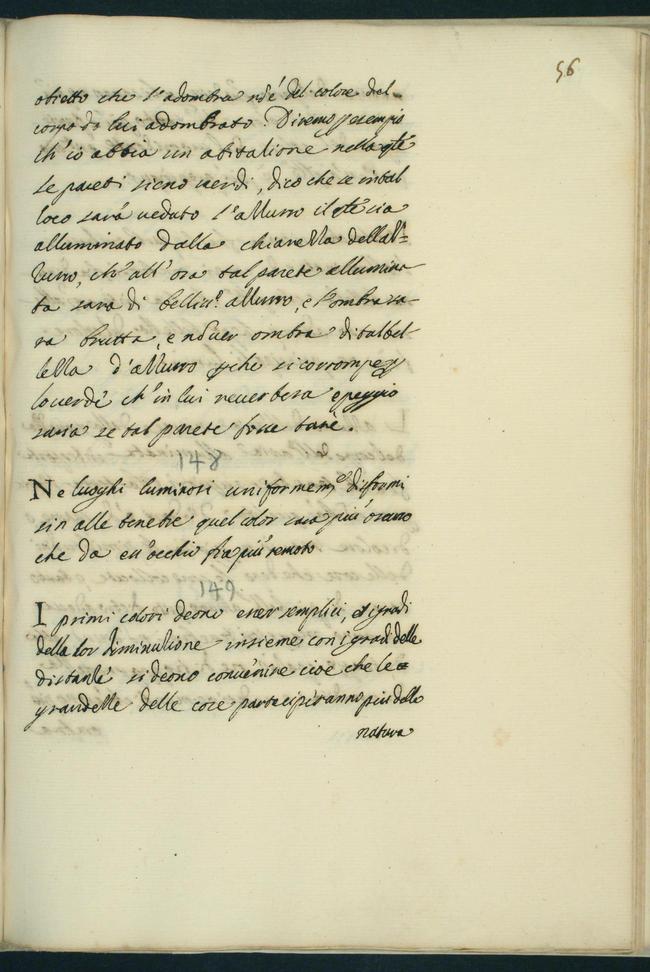 56
obietto che l'adombra nè del colore del-
corpo da lui adombrato. Diremo p esempio
ch'io abbia un abitazione nella q.le
le pareti sieno verdi, dico che se in tal
loco sarà veduto l'azzurro il q.le sia
alluminato dalla chiarezza dell'az=
zurro, ch'all'ora tal parete allumina-
ta sara di belliss.o azzurro, e l'ombra sa-
ra brutta, e non ver ombra di tal bel-
lezza d'azzurro p che si corrompe p
lo verde ch'in lui reverbera e peggio
saria se tal parete fosse tanè.
148
Ne luoghi luminosi uniformem.te difformi
sin alle tenebre quel color sara più oscuro
che da ess'occhio fia più remoto
149
I primi colori deono esser semplici, et i gradi
della lor diminuzione insieme con i gradi delle
distanze si deono convenire cioè che le=
grandezze delle cose parteciperanno più della
natura